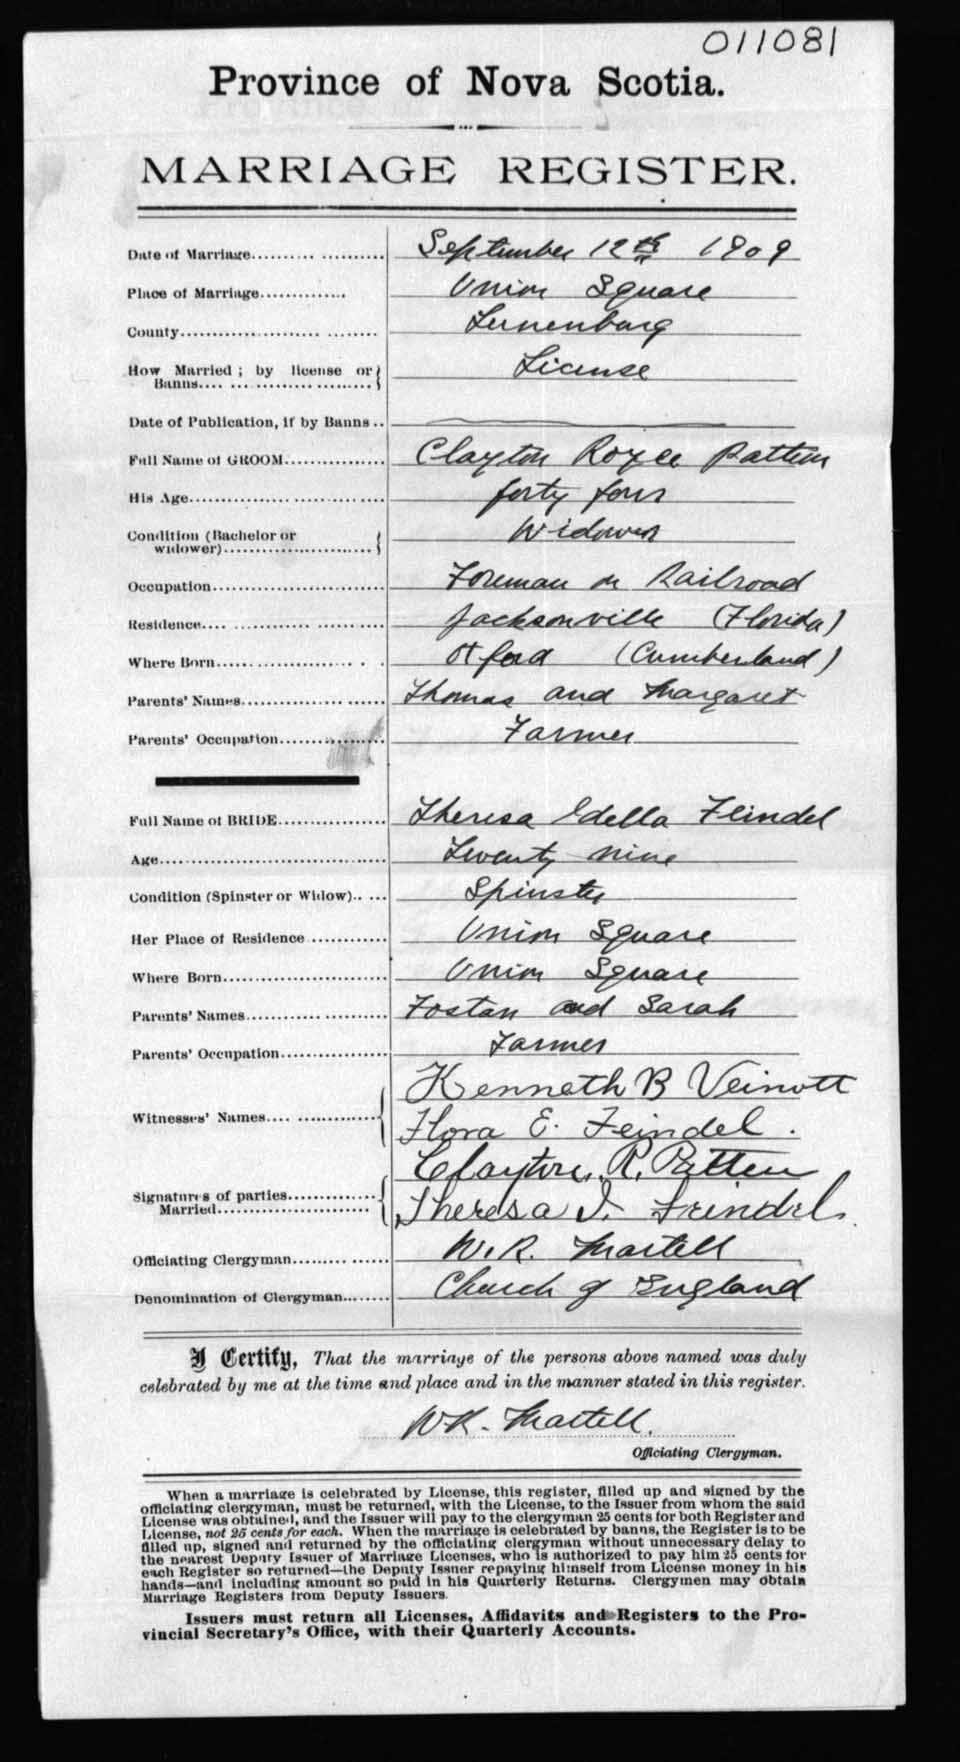 011081
Province of Nova Scotia.
MARRIAGE REGISTER.
Date of Marriage.......... September 12th 1909
Place of Marriage.......... Union Square
County.......... Lunenburg
How Married; by license or Banns.......... License
Date of Publication, if by Banns..
Full Name of GROOM.......... Clayton Royce Patten
His Age.......... forty four
Condition (Bachelor or widower).......... Widower
Occupation.......... Foreman on Railroad
Residence.......... Jacksonville (Florida)
Where Born.......... Oxford (Cumberland)
Parents' Names.......... Thomas and Margaret
Parents' Occupation.......... Farmer
Full Name of BRIDE.......... Theresa Idella Feindel
Age.......... Twenty nine
Condition (Spinster or Widow)..... Spinster
Her Place of Residence.......... Union Square
Where Born.......... Union Square
Parents' Names.......... Fostan and Sarah
Parents' Occupation.......... Farmer
Witnesses' Names.......... Kenneth B Veinott
Flora E. Feindel.
Signatures of parties Married.......... Clayton R. Patten
Theresa I. Feindel.
Officiating Clergyman.......... W. R. Martell
Denomination of Clergyman.......... Church of England
I Certify, That the marriage of the persons above named was duly
celebrated by me at the time and place and in the manner stated in this register.
W R. Martell.
Officiating Clergyman.
When a marriage is celebrated by License, this register, filled up and signed by the
officiating clergyman, must be returned, with the License, to the Issuer from whom the said
License was obtained, and the Issuer will pay to the clergyman 25 cents for both Register and
License, not 25 cents for each. When the marriage is celebrated by banns, the Register is to be
filled up, signed and returned by the officiating clergyman without unnecessary delay to
the nearest Deputy Issuer of Marriage Licenses, who is authorized to pay him 25 cents for
each Register so returned—the Deputy Issuer repaying himself from License money in his
hands—and including amount so paid in his Quarterly Returns. Clergymen may obtain
Marriage Registers from Deputy Issuers.
Issuers must return all Licenses, Affidavits and Registers to the Pro-
vincial Secretary's Office, with their Quarterly Accounts.